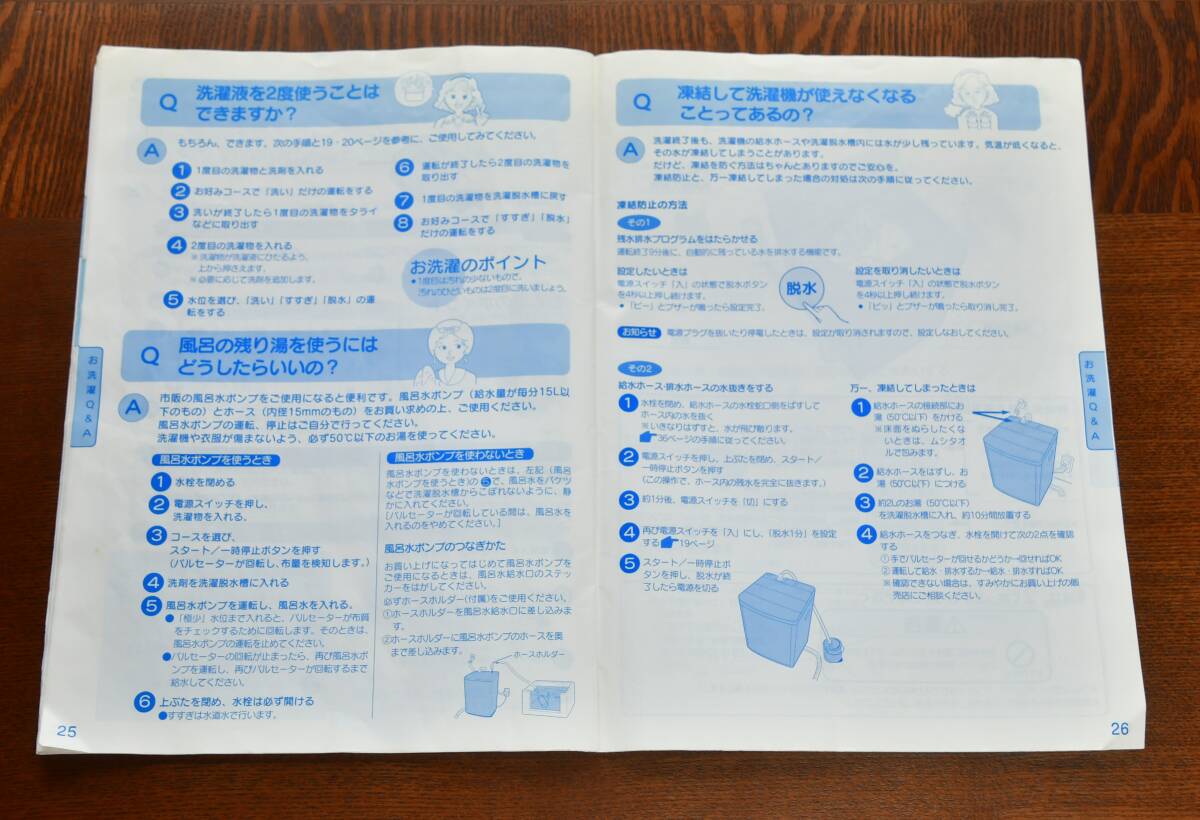 Q 洗濯液を2度使うことは
できますか？
A もちろん、できます。次の手順と19・20ページを参考に、ご使用してみてください。
1 1度目の洗濯物と洗剤を入れる
2 お好みコースで「洗い」だけの運転をする
3 洗いが終了したら1度目の洗濯物をタライ
などに取り出す
4 2度目の洗濯物を入れる
※洗濯物が洗濯液にひたるよう、
上から押さえます。
※必要に応じて洗剤を追加します。
5 水位を選び、「洗い」「すすぎ」「脱水」の運
転をする
6 運転が終了したら2度目の洗濯物を
取り出す
7 1度目の洗濯物を洗濯脱水槽に戻す
8 お好みコースで「すすぎ」「脱水」
だけの運転をする
お洗濯のポイント
●1度目は汚れの少ないもので、
汚れのひどいものは2度目に洗いましょう。
Q 風呂の残り湯を使うには
どうしたらいいの？
A 市販の風呂水ポンプをご使用になると便利です。風呂水ポンプ（給水量が毎分15L以
下のもの）とホース（内径15mmのもの）をお買い求めの上、ご使用ください。
風呂水ポンプの運転、停止はご自分で行ってください。
洗濯機や衣服が傷まないよう、必ず50℃以下のお湯を使ってください。
風呂水ポンプを使うとき
1 水栓を閉める
2 電源スイッチを押し、
洗濯物を入れる。
3 コースを選び、
スタート／一時停止ボタンを押す
（パルセーターが回転し、布量を検知します。）
4 洗剤を洗濯脱水槽に入れる
5 風呂水ポンプを運転し、風呂水を入れる。
●「極少」水位まで入れると、パルセーターが布質
をチェックするために回転します。そのときは、
風呂水ポンプの運転を止めてください。
●パルセーターの回転が止まったら、再び風呂水ポ
ンプを運転し、再びパルセーターが回転するまで
給水してください。
6 上ぶたを閉め、水栓は必ず開ける
●すすぎは水道水で行います。
風呂水ポンプを使わないとき
風呂水ポンプを使わないときは、左記（風呂
水ポンプを使うとき）の5で、風呂水をバケツ
などで洗濯脱水槽からこぼれないように、静
かに入れてください。
［パルセーターが回転している間は、風呂水を
入れるのをやめてください。］
風呂水ポンプのつなぎかた
お買い上げになってはじめて風呂水ポンプを
ご使用になるときは、風呂水給水口のステッ
カーをはがしてください。
必ずホースホルダー（付属）をご使用ください。
①ホースホルダーを風呂水給水口に差し込みま
す。
②ホースホルダーに風呂水ポンプのホースを奥
まで差し込みます。
ホースホルダー
お洗濯Q&A
25
Q 凍結して洗濯機が使えなくなる
ことってあるの？
A 洗濯終了後も、洗濯機の給水ホースや洗濯脱水槽内には水が少し残っています。気温が低くなると、
その水が凍結してしまうことがあります。
だけど、凍結を防ぐ方法はちゃんとありますのでご安心を。
凍結防止と、万一凍結してしまった場合の対処は次の手順に従ってください。
凍結防止の方法
その1
残水排水プログラムをはたらかせる
運転終了9分後に、自動的に残っている水を排水する機能です。
設定したいときは
電源スイッチ「入」の状態で脱水ボタン
を4秒以上押し続けます。
●「ピー」とブザーが鳴ったら設定完了。
脱水
設定を取り消したいときは
電源スイッチ「入」の状態で脱水ボタン
を4秒以上押し続けます。
●「ピッ」とブザーが鳴ったら取り消し完了。
お知らせ 電源プラグを抜いたり停電したときは、設定が取り消されますので、設定しなおしてください。
その2
給水ホース・排水ホースの水抜きをする
1 水栓を閉め、給水ホースの水栓蛇口側をはずして
ホース内の水を抜く
※いきなりはずすと、水が飛び散ります。
36ページの手順に従ってください。
2 電源スイッチを押し、上ぶたを閉め、スタート／
一時停止ボタンを押す
（この操作で、ホース内の残水を完全に抜きます。）
3 約1分後、電源スイッチを「切」にする
4 再び電源スイッチを「入」にし、「脱水1分」を設定
する 19ページ
5 スタート／一時停止ボ
タンを押し、脱水が終
了したら電源を切る
万一、凍結してしまったときは
1 給水ホースの接続部にお
湯（50℃以下）をかける
※床面をぬらしたくな
いときは、ムシタオ
ルで包みます。
2 給水ホースをはずし、お
湯（50℃以下）につける
3 約2Lのお湯（50℃以下）
を洗濯脱水槽に入れ、約10分間放置する
4 給水ホースをつなぎ、水栓を開けて次の2点を確認
する
①手でパルセーターが回せるかどうか→回せればOK
②運転して給水・排水するか→給水・排水すればOK
※確認できない場合は、すみやかにお買い上げの販
売店にご相談ください。
お洗濯Q&A
26